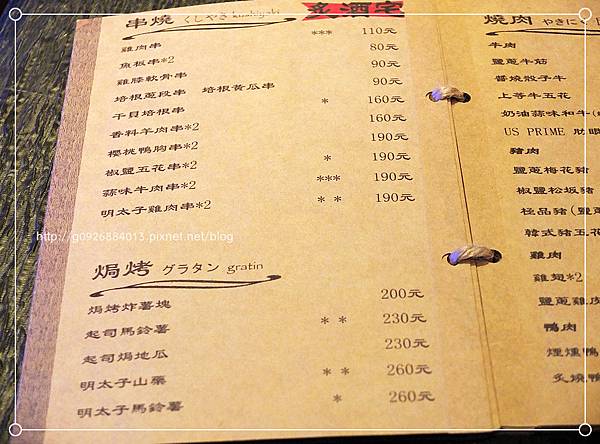 串燒 くしやき kushiyaki
炙酒宅
雞肉串 *** 110元
魚板串*2 80元
雞膝軟骨串 90元
培根蔥段串 培根黃瓜串 90元
干貝培根串 * 160元
香料羊肉串*2 160元
櫻桃鴨胸串*2 190元
椒鹽五花串*2 * 190元
蒜味牛肉串*2 *** 190元
明太子雞肉串*2 * * 190元
http://g0926884013.pixnet.net/blog
焗烤 グラタン gratin
焗烤炸薯塊 200元
起司馬鈴薯 * * 230元
起司焗地瓜 230元
明太子山藥 * * 260元
明太子馬鈴薯 * 260元
燒肉 やきに
牛肉
鹽蔥牛筋
醬燒骰子牛
上等牛五花
奶油蒜味和牛(
US PRIME 肋眼
豬肉
鹽蔥梅花豬
椒鹽松坂豬
極品豬(鹽
韓式豬五花
雞肉
雞翅*2
鹽蔥雞
鴨肉
煙燻鴨
炙燒鴨